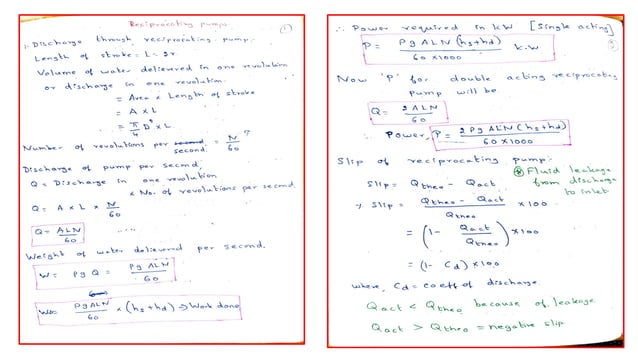 Reciprocating pump
①
1. Discharge through reciprocating pump.
Length of stroke = L = 2r
Volume of water delivered in one revolution
or discharge in one revolution
= Area × Length of stroke
= A × L
= π/4 D² × L
Number of revolutions per second = N/60
Discharge of pump per second
Q = Discharge in one revolution
× No. of revolutions per second
Q = A × L × N/60
Q = ALN/60
Weight of water delivered per second.
W = ρgQ = ρgALN/60
ρgALN/60 × (hs+hd) → Work done
∴ Power required in kW [Single acting]
P = ρgALN(hs+hd)/60×1000 k.W
Now 'P' for double acting reciprocating
pump will be
Q = 2ALN/60
∴ Power, P = 2ρgALN(hs+hd)/60×1000
Slip of reciprocating pump:
Slip = Qtheo - Qact
⊛ Fluid leakage
from discharge
to inlet
% Slip = Qtheo - Qact/Qtheo × 100
= (1 - Qact/Qtheo) × 100
= (1 - Cd) × 100
where, Cd = coeff of discharge.
Qact < Qtheo because of leakage
Qact > Qtheo = negative slip